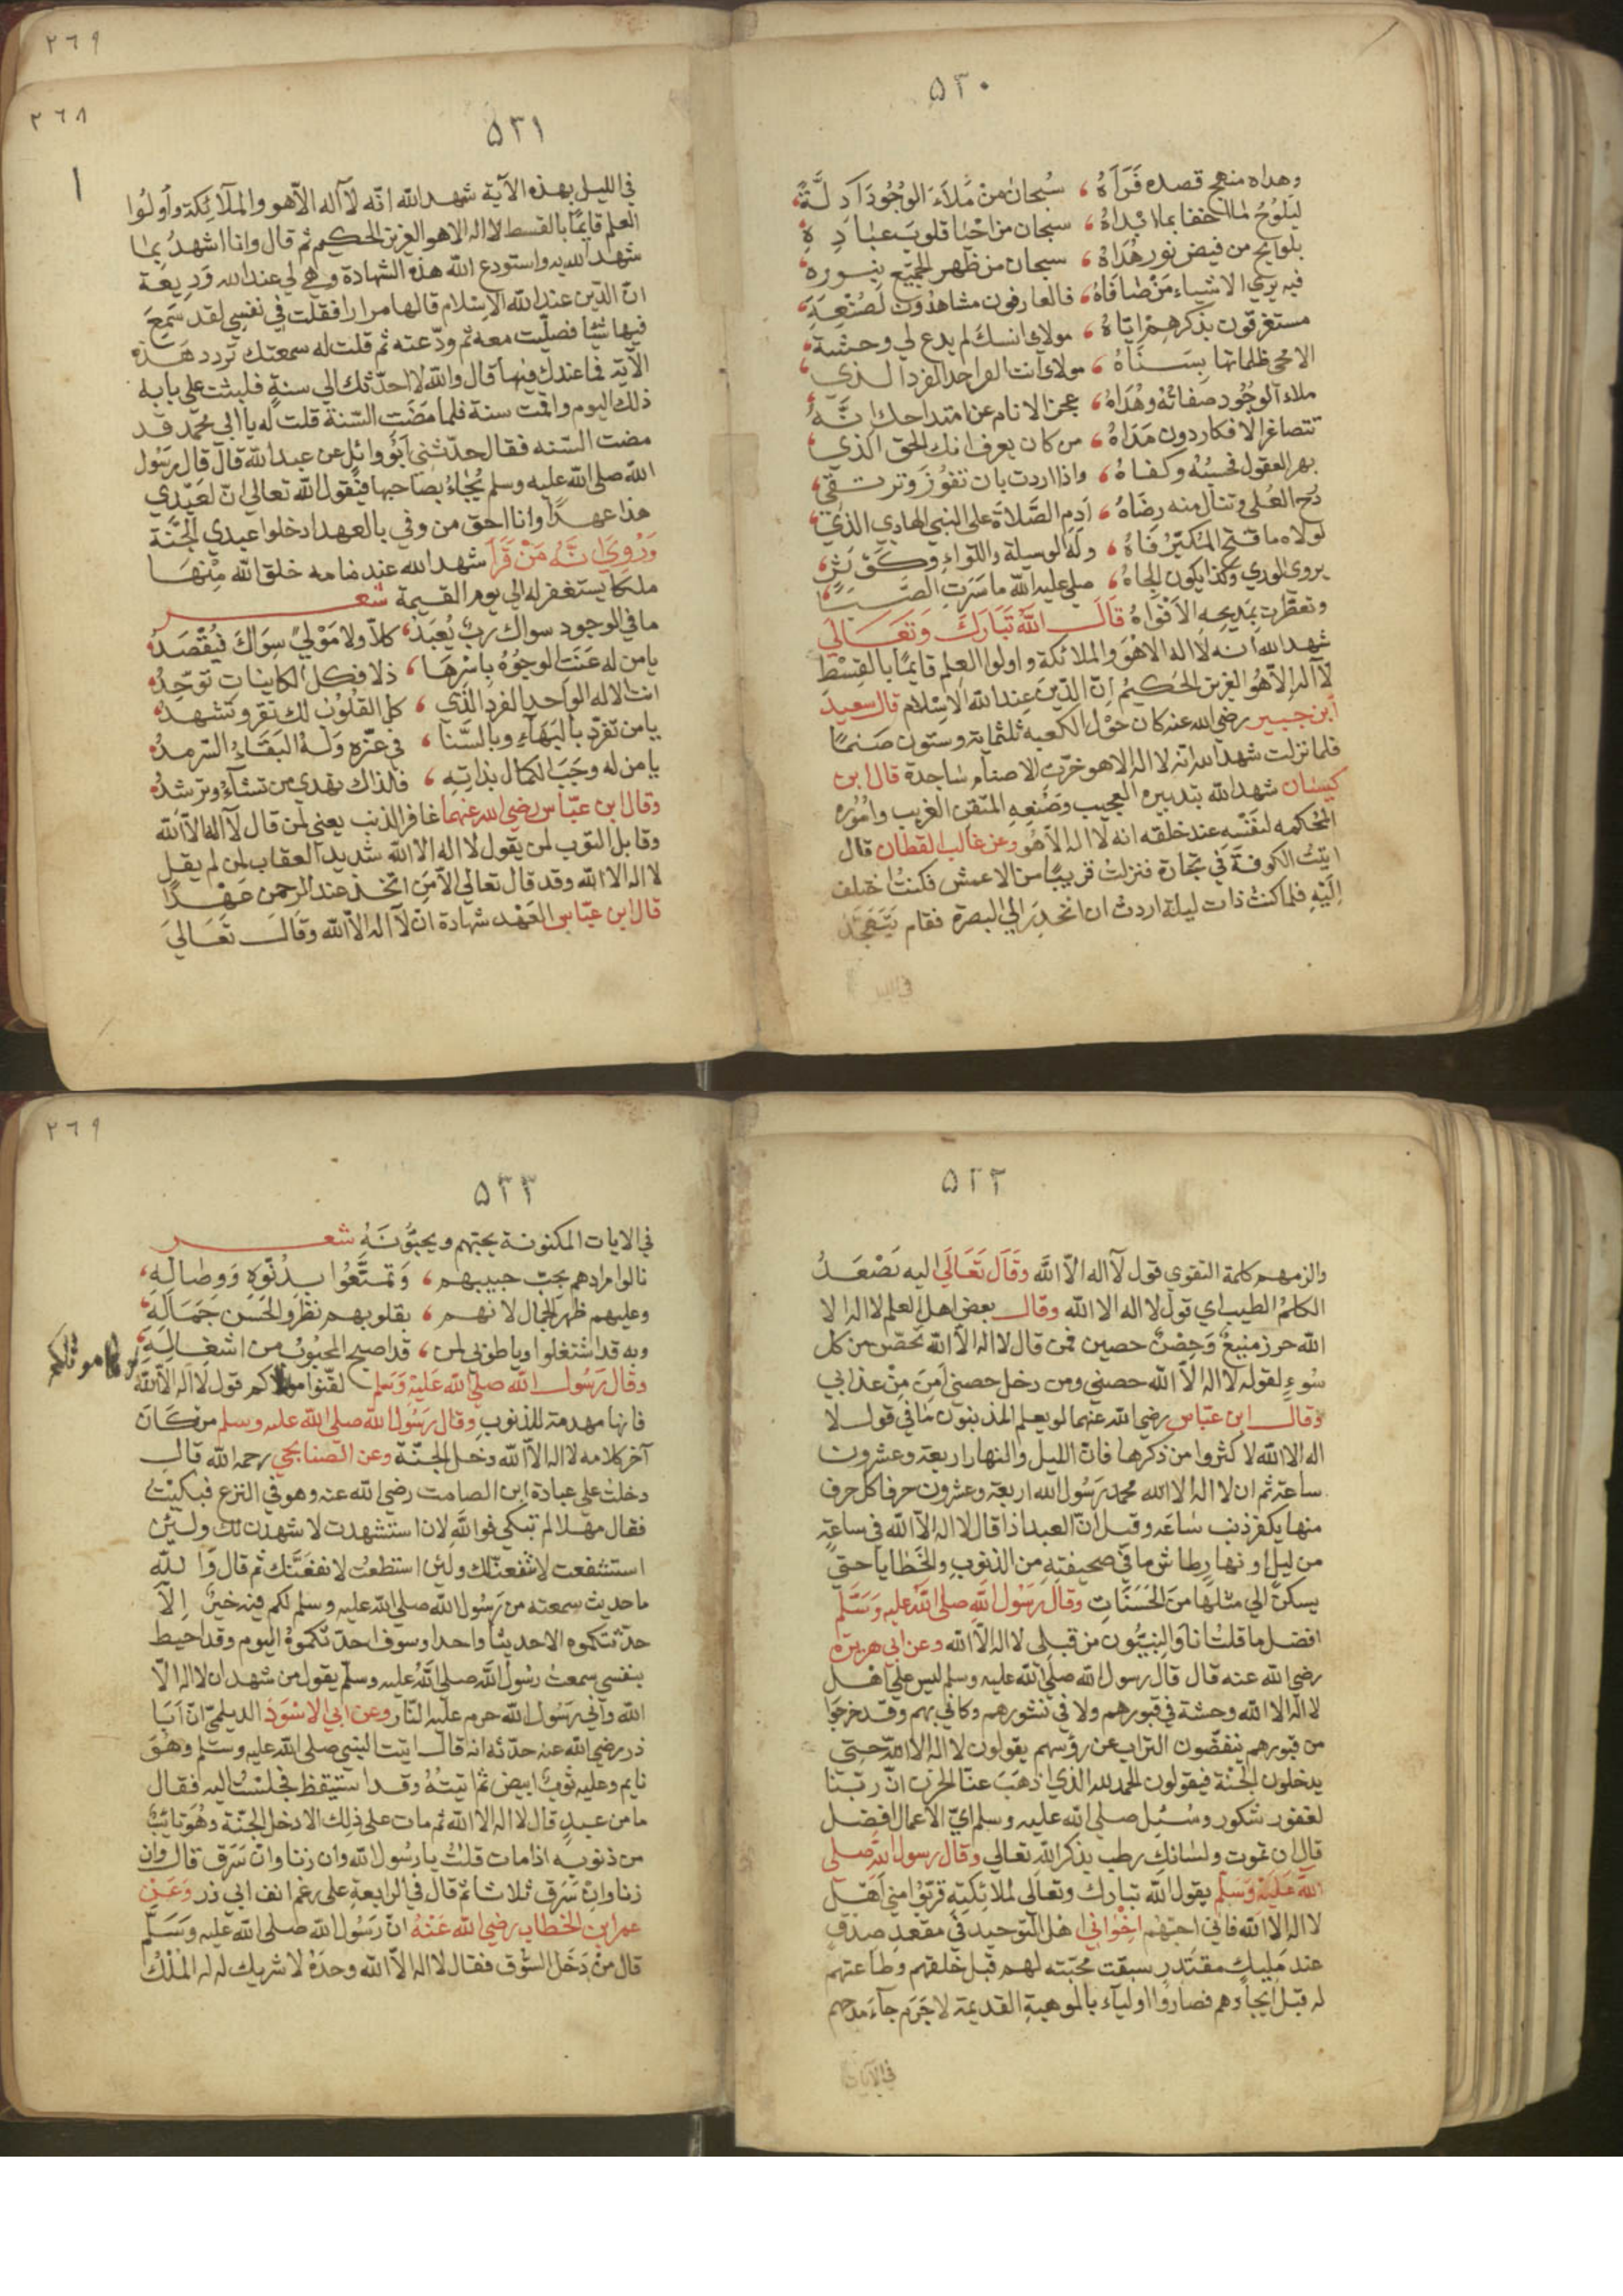 ٥٣٠
وهداه منهج قصده فَرَآهُ ، سُبحان من مَلَاءَ الوُجُودَ اَدِلَّةً ،
ليَلُوحُ ما اخفا بما ابْدَاهُ ، سبحان من احْيا قلوبَ عبَادِهِ
بلوايح من فيض نور هُدَاهُ ، سبحان من ظهر الجميّع بنوره ،
فيه يري الاشياء مَنْ صَافَاهُ ، فالعارفون مشاهدُون لصُنْعِهِ ،
مستغرقون بذكرهم اِيّاهُ ، مولاى انسك لم يدع لي وحشة ،
الا محى ظلماتها بِسَنَاهُ ، مولاى انت الواحد الفرد الذي ،
ملاء الوُجُود صفاتُهُ وهُدَاهُ ، عجز الانام عن امتداحك انَّهُ ،
تتصاغر الافكار دون مَدَاهُ ، من كان يعرف انك الحق الذي ،
بهر العقول فحسبُهُ وكفاهُ ، واذا اردت بان تفُوزَ وترتقي ،
دُرج العُلى وتنال منه رِضَاهُ ، اَدِمِ الصَّلاةَ على النبي الهادي الذي ،
لولاه ما فتح المتكبّر فَاهُ ، وله الوسيلة واللوآء وكَوْثَرٌ ،
يروى الورى وكذا يكون الجاهُ ، صلى عليه الله ما سَرَتِ الصَّبَا ،
وتعطّرت بمديحه الاَفْوَاهُ قَالَ اللهُ تَبَارَكَ وَتَعَالَى
شهد الله اَنه لا اله الا هُوَ والملائكة واولوا العِلم قايمًا بالقِسْطِ
لآ اله اِلاّ هُوَ العزيز الحَكيمُ اِنَّ الدّينَ عِندَ الله الاِسْلام قال سعيد
اَبن جبير رضي الله عنه كان حَوْل الكعبه ثلثماية وستون صَنمًا
فلما نزلت شهد الله انه لا اله الا هو خرّت الاصنام سَاجدة قال ابن
كيسان شهد الله بتدبيره العجيب وصُنعِهِ المتقن الغريب وامُوره
المحُكمه لنَفْسه عند خلقه انه لا اله الا هُو وعن غالب القطان قال
اتيتُ الكوفَةَ فى تجارة فنزلتُ قريبًا من الاعمش فكنتُ اختلف
اِلَيْهِ فلما كنتُ ذات ليلة اردتُ ان انحدِرَ الى البصرة فقام يَتَهَجّدُ
في الليل
٢٦٩
٢٦٨
٥٣١
في الليل بهذه الآية شهد الله انّه لآ اله الاّ هو والملآئكة وأولُوا
العلم قايمًا بالقسط لا اله الا هو العزيز الحكيم ثم قال وانا اشهدُ بما
شهد الله به واستودع الله هذه الشهادة وهي لي عند الله وَدِيعَة
انّ الدّين عند الله الاِسْلام قالها مرارا فقلت في نفسِي لقد سَمِعَ
فيها شيئا فصلّيت معه ثم ودّعته ثم قلت له سمعتك تردد هَذِه
الآية فما عندك فيها قال والله لا احدّثك الي سنةٍ فلبثت على بابه
ذلك اليوم واقمت سنة فلما مَضَت السّنة قلت له يا ابى محمد قد
مضت السّنه فقال حدّثني اَبُو وائِل عن عبد الله قال قال رسُول
الله صلى الله عليه وسلم يُجَاءُ بصَاحبها فيَقولُ الله تعالى انّ لعَبْدِي
هذا عهدًا وانا احق من وفي بالعهد ادخلوا عبدي الجَنَّة
وَرُوِيَ انَّهُ مَنْ قَرَأ شهد الله عند منامه خلق الله مِنْهَا
ملكا يستغفر له الي يوم القيمة شعر
ما في الوجود سواك ربٌّ يُعبَدُ ، كلاّ ولا مَوْليً سِوَاكَ فيُقْصَدُ
يا من له عَنَتِ الوجُوُهُ بِاسْرِهَا ، ذلا فكل الكاينات توَحّدُ ،
انت الاله الواحد الفرد الذي ، كل القلُوْب لك تقر وتشهدُ ،
يا من تفرّد بالبَهاءِ وبالسَّنا ، في عزّه وَلَهُ البَقَاءُ السّرمدُ ،
يا من له وجَبَ الكمال بذاتِهِ ، فلذاك تهدي من تشآء وترشدُ ،
وقال ابن عبّاس رضي الله عنهما غافر الذنب يعني لمن قال لآ اله الاّ الله
وقابل التوب لمن يقول لا اله الا الله شديد العقاب لمن لم يقل
لا اله الا الله وقد قال تعالى الا مَن اتّخذ عند الرحمن عَهْدًا
قال ابن عبّاس العَهْد شهَادة ان لآ اله الاّ الله وقَالَ تَعَالَى
٥٣٢
والزمهم كلمة التقوى قول لآ اله الاّ الله وقَالَ تَعَالَى اليه يَصْعَدُ
الكَلمُ الطيب اي قول لا اله الا الله وقال بعض اهل العلم لا اله الا
الله حرز منيعٌ وَحِصْنٌ حصين فمن قال لا اله الاّ الله تحصّن من كل
سُوءٍ لقوله لا اله الاّ الله حصني ومن دخل حصني اَمِنَ مِنْ عذابي
وقال ابن عبّاس رضى الله عنهما لو يعلم المذنبون مَا في قول لا
اله الا الله لاكثروا من ذكرها فانّ الليل والنهار اربعة وعشرون
ساعة ثم ان لا اله الا الله محمد رَسُول الله اربعة وعشرون حرفا كل حرف
منها يكفر ذنب سَاعَه وقيل انّ العبد اذا قال لا اله الاّ الله في ساعةٍ
من ليلٍ او نهارٍ طاش ما في صحيفتهِ من الذنوبِ والخَطَايا حتيٍ
يسكن الي مثلها مَنَ الحَسَنَاتِ وقال رَسُول الله صلى الله عليه وسَلّم
افضل ما قلتُ انا والنبيُّون من قبلى لا اله الاّ الله وعن ابى هريرة
رضي الله عنه قال قال رسول الله صلى الله عليه وسلم ليس على اهل
لا اله الا الله وحشة في قبورهم ولا فى نشورهم وكاني بهم وقد خرجُوا
من قبورهم ينفضّون التراب عن رؤسهم يقولون لا اله الا الله حتي
يدخلون الجنّة فيقولون الحمد لله الذي اَذهَبَ عنّا الحزن انّ ربّنا
لغفور شكور وسُئِل صلى الله عليه وسلم ايّ الاعمال افضل
قال ان تموت ولسَانك رطب بذكر الله تعالي وقال رسول الله صلي
اللهُ عَلَيْهِ وَسَلّم يقول الله تبارك وتعالى لملائكتِهِ قرّبُوا مني اَهْل
لا اله الا الله فاني احبّهم اخْوَاني اهل التوحيد في مقعد صدقٍ
عند مَليكٍ مقتدرٍ سبقت محبّته لهم قبل خلقهم وطاعتهم
له قبل ايجادهم فصارُوا اوليآء بالموهبة القديمة لا جَرَم جآءَ مدحهم
في الآيات
٢٦٩
٥٣٣
في الايات المكنونة يحبّهم ويحبُّونَهُ شعر
نالوا مرادهم بحبّ حبيبهم ، وَتمتَّعُوا بِدُنُوِّهِ وَوِصَالِهِ ،
وعليهم ظهر الجمال لانهم ، بقلوبهم نظرو الحُسْن جَمَالِهِ ،
وبه قد اشتغلوا ويا طوبى لمن ، قد اصبح المحبُوبُ من اشغالِهِ ،
وقال رَسُول الله صلى الله عَلَيْهِ وَسَلم لقّنوا موتاكم قول لا اله الاّ الله
موتاكم
فانها مهدمة للذنوبِ وقال رَسُول الله صلى الله عليه وسلم من كَانَ
آخر كلامه لا اله الاّ الله دخل الجنّة وعن الصّنابحي رحمه الله قال
دخلتُ على عبادة ابن الصامت رضى الله عنه وهو في النزع فبكيْتُ
فقال مهلا لم تبكي فوالله لان استشهدت لاشهدن لك ولَئِن
استشفعت لاشفعنّ لك ولئن استطعتُ لانفعَنَّك ثم قال وَاللهِ
ما حديث سمعته من رَسُول الله صلى الله عليه وسلم لكم فيه خيرٌ اِلاّ
حدّثتكموه الا حديثًا واحدا وسوف احدّثكموهُ اليوم وقد احيط
بنفسي سمعتُ رسُول الله صلى اللهُ عليه وسلّم يقول من شهد ان لا اله الاّ
الله واني رَسُول الله حرم عليه النّار وعن ابي الاسْوَد الديلمي انّ اَبَا
ذر رضي الله عنه حدّثه انه قال اتيت النبي صلى الله عليه وسَلّم وهُوَ
نايم وعليه ثوبٌ ابيض ثم اتيتُهُ وقد استيقظ فجلستُ اليه فقال
ما من عبدٍ قال لا اله الا الله ثم مات على ذلِك الا دخل الجنّة وهُوَ تائبٌ
من ذنوبه اذا مات قلتُ يا رسُول الله وان زنا وان سَرَق قال وان
زنا وانْ سَرَق ثلاثا ثم قال في الرابعةِ على رغم انف ابي ذر وَعَنِ
عمر ابن الخطاب رضي الله عَنْهُ انّ رَسُول الله صلى الله عليه وَسَلّم
قال مَنْ دَخَلَ السّوق فقال لا اله الاّ الله وحدَهُ لا شريك له له المُلكُ